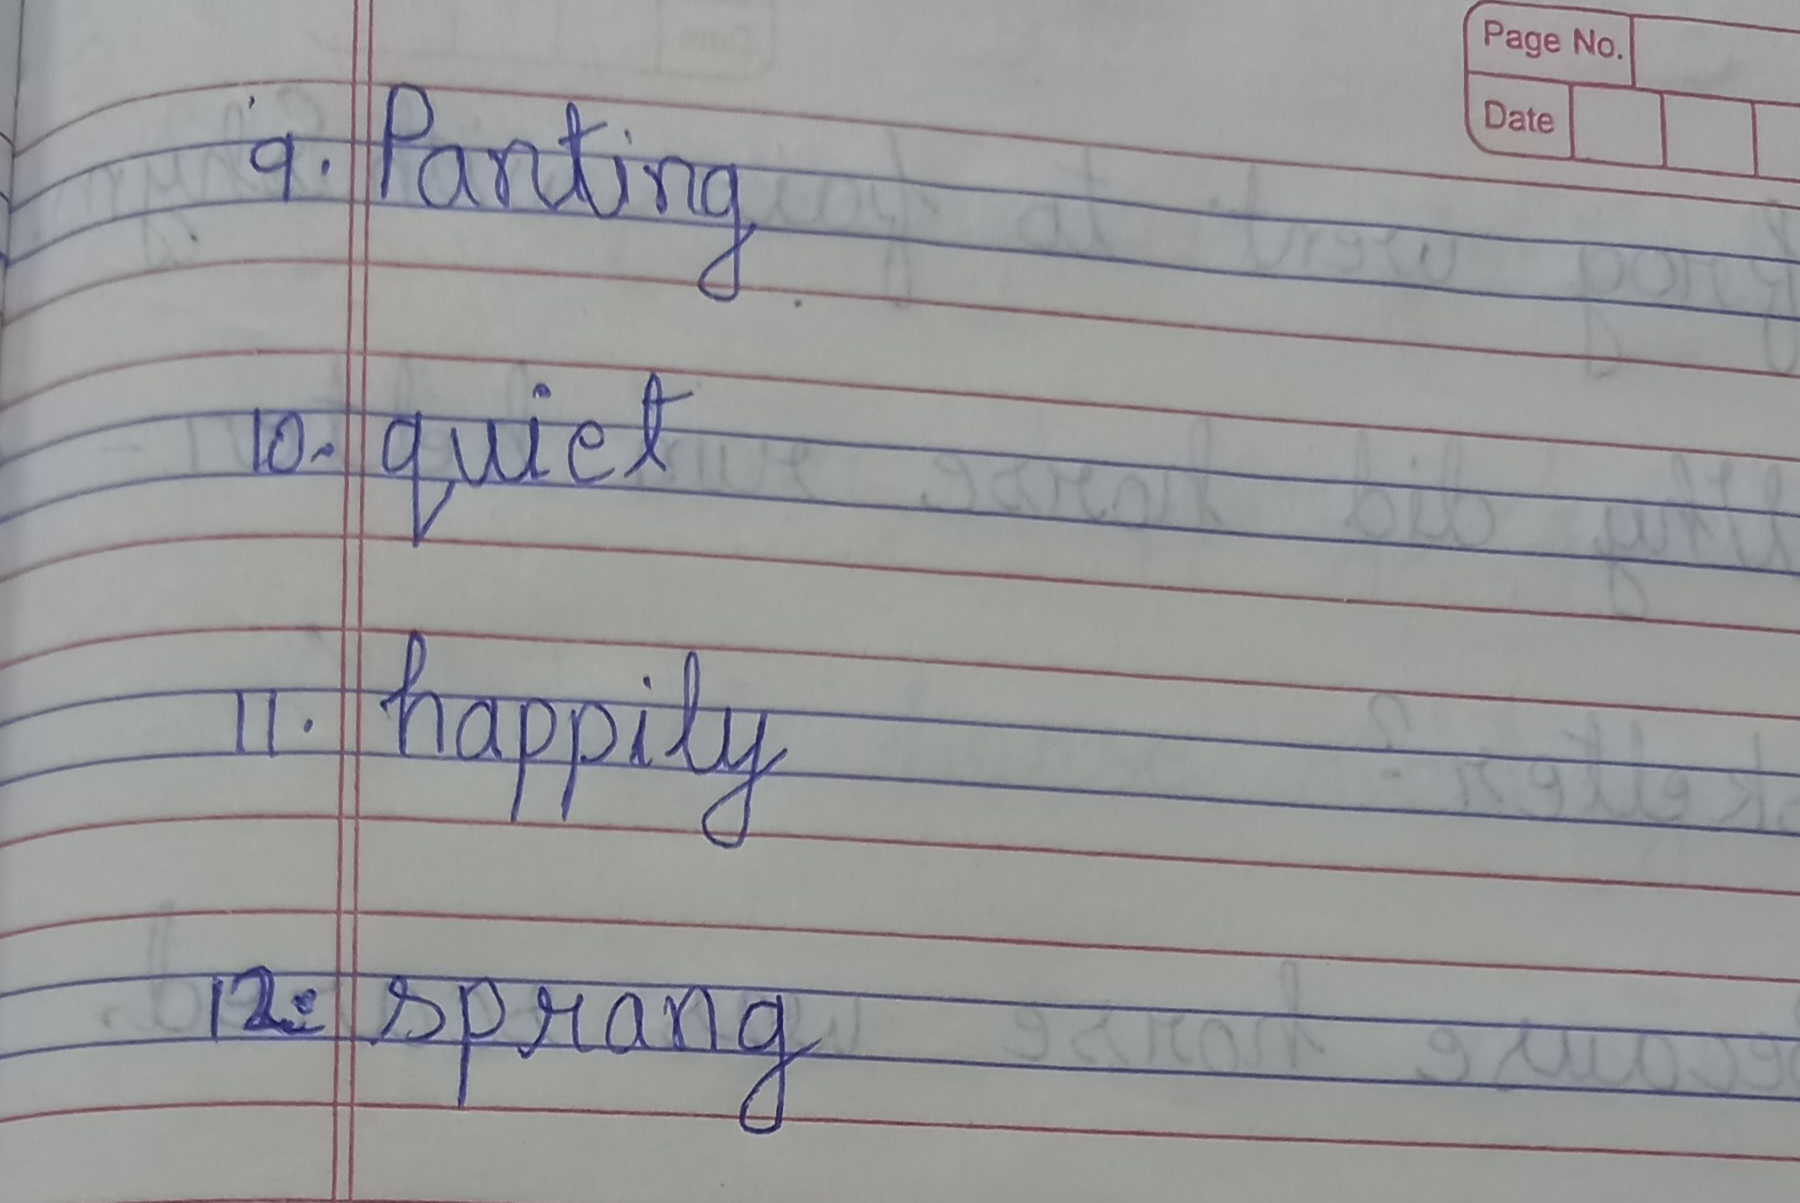 Page No.
Date
9. Panting
10. quiet
11. happily
12. sprang